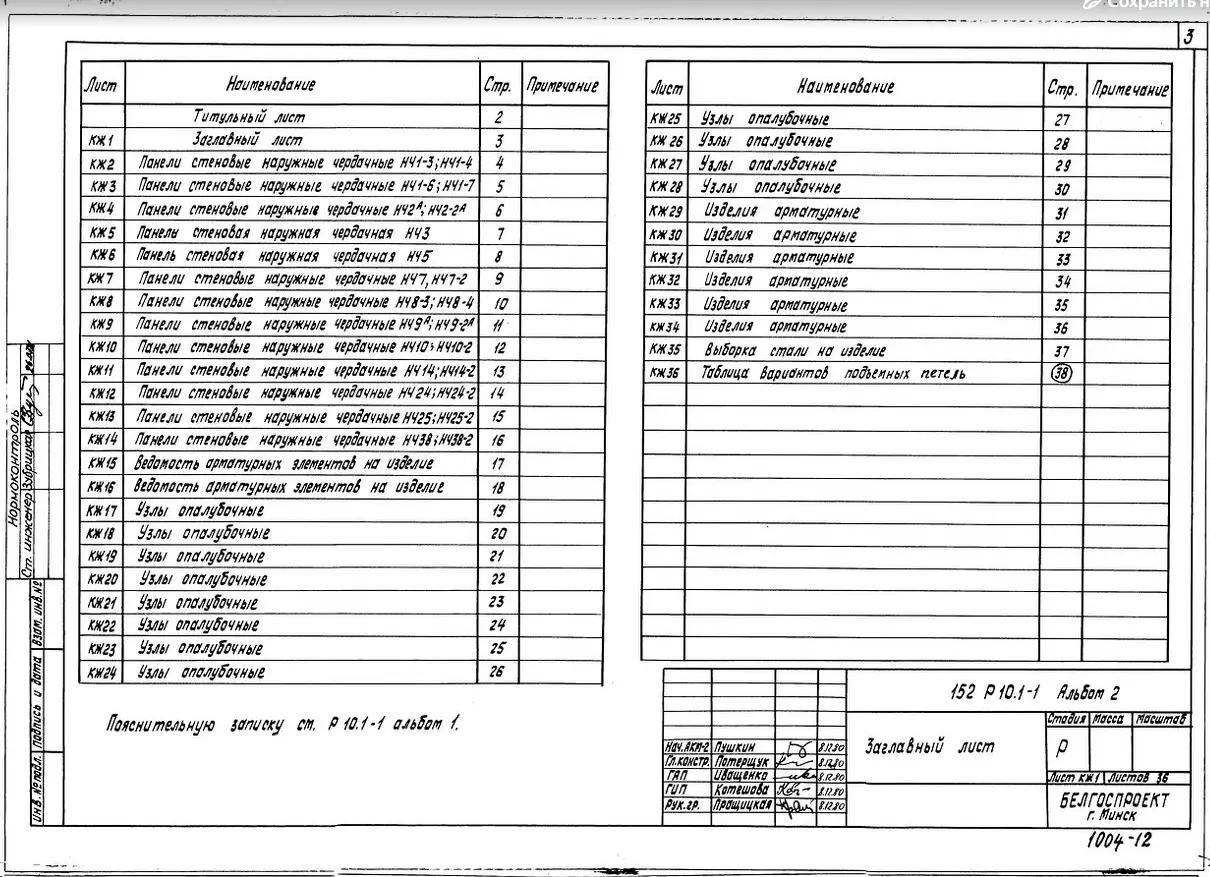 Сохранить н
3
Лист Наименование Стр. Примечание
Титульный лист 2
КЖ1 Заглавный лист 3
КЖ2 Панели стеновые наружные чердачные НЧ1-3; НЧ1-4 4
КЖ3 Панели стеновые наружные чердачные НЧ1-6; НЧ1-7 5
КЖ4 Панели стеновые наружные чердачные НЧ2А; НЧ2-2А 6
КЖ5 Панель стеновая наружная чердачная НЧ3 7
КЖ6 Панель стеновая наружная чердачная НЧ5 8
КЖ7 Панели стеновые наружные чердачные НЧ7, НЧ7-2 9
КЖ8 Панели стеновые наружные чердачные НЧ8-3; НЧ8-4 10
КЖ9 Панели стеновые наружные чердачные НЧ9А; НЧ9-2А 11
КЖ10 Панели стеновые наружные чердачные НЧ10; НЧ10-2 12
КЖ11 Панели стеновые наружные чердачные НЧ14; НЧ14-2 13
КЖ12 Панели стеновые наружные чердачные НЧ24; НЧ24-2 14
КЖ13 Панели стеновые наружные чердачные НЧ25; НЧ25-2 15
КЖ14 Панели стеновые наружные чердачные НЧ38; НЧ38-2 16
КЖ15 Ведомость арматурных элементов на изделие 17
КЖ16 Ведомость арматурных элементов на изделие 18
КЖ17 Узлы опалубочные 19
КЖ18 Узлы опалубочные 20
КЖ19 Узлы опалубочные 21
КЖ20 Узлы опалубочные 22
КЖ21 Узлы опалубочные 23
КЖ22 Узлы опалубочные 24
КЖ23 Узлы опалубочные 25
КЖ24 Узлы опалубочные 26
Пояснительную записку см. Р 10.1-1 альбом 1.
Лист Наименование Стр. Примечание
КЖ25 Узлы опалубочные 27
КЖ26 Узлы опалубочные 28
КЖ27 Узлы опалубочные 29
КЖ28 Узлы опалубочные 30
КЖ29 Изделия арматурные 31
КЖ30 Изделия арматурные 32
КЖ31 Изделия арматурные 33
КЖ32 Изделия арматурные 34
КЖ33 Изделия арматурные 35
КЖ34 Изделия арматурные 36
КЖ35 Выборка стали на изделие 37
КЖ36 Таблица вариантов подъемных петель 38
152 Р 10.1-1 Альбом 2
Заглавный лист
Стадия Масса Масштаб
Р
Лист КЖ1 Листов 36
БЕЛГОСПРОЕКТ
г. Минск
1004-12
Нач.АКМ-2 Пушкин 8.12.80
Гл.констр. Потерщук 8.12.80
ГАП Иващенко 8.12.80
ГИП Котешова 8.12.80
Рук.гр. Пращицкая 8.12.80
Нормоконтроль
Ст. инженер Зубрицкая
Взам. инв.№
Подпись и дата
Инв.№подл.